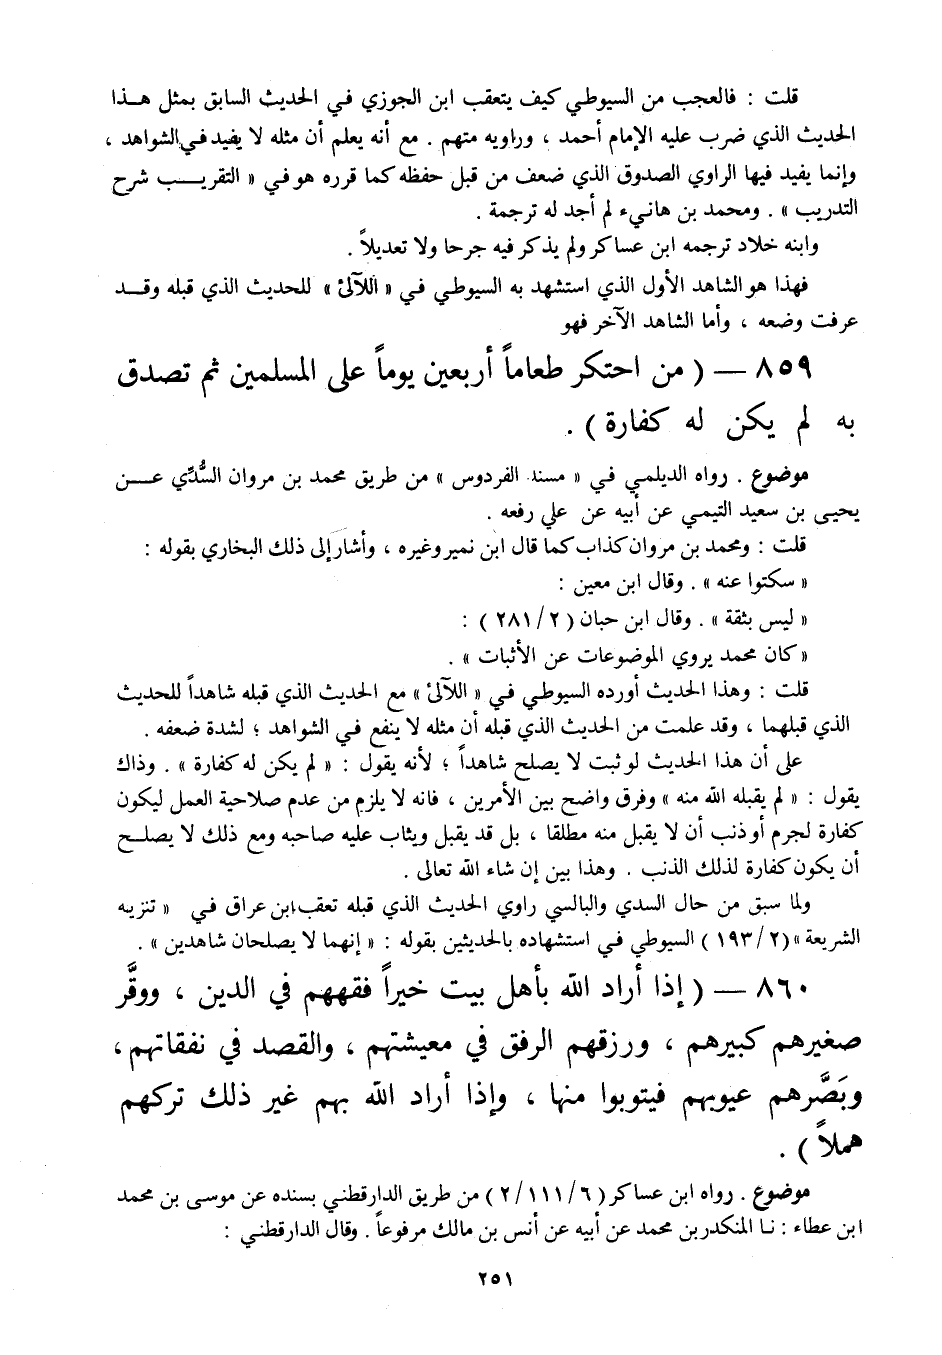 قلت : فالعجب من السيوطي كيف يتعقب ابن الجوزي في الحديث السابق بمثل هـذا
الحديث الذي ضرب عليه الإمام أحمد ، وراويه متهم . مع أنه يعلم أن مثله لا يفيد في الشواهد ،
وإنما يفيد فيها الراوي الصدوق الذي ضعف من قبل حفظه كما قرره هو في « التقريـب شرح
التدريب » . ومحمد بن هانيء لم أجد له ترجمة .
وابنه خلاد ترجمه ابن عساكر ولم يذكر فيه جرحا ولا تعديلاً .
فهذا هو الشاهد الأول الذي استشهد به السيوطي في « اللآلئ » للحديث الذي قبله وقـد
عرفت وضعه ، وأما الشاهد الآخر فهو
٨٥٩ – ( من احتكر طعاماً أربعين يوماً على المسلمين ثم تصدق
به لم يكن له كفارة ) .
موضوع . رواه الديلمي في « مسند الفردوس » من طريق محمد بن مروان السُّدِّي عـن
يحيى بن سعيد التيمي عن أبيه عن علي رفعه .
قلت : ومحمد بن مروان كذاب كما قال ابن نمير وغيره ، وأشار إلى ذلك البخاري بقوله :
« سكتوا عنه » . وقال ابن معين :
« ليس بثقة » . وقال ابن حبان ( ٢/ ٢٨١ ) :
« كان محمد يروي الموضوعات عن الأثبات » .
قلت : وهذا الحديث أورده السيوطي في « اللآلئ » مع الحديث الذي قبله شاهداً للحديث
الذي قبلهما ، وقد علمت من الحديث الذي قبله أن مثله لا ينفع في الشواهد ؛ لشدة ضعفه .
على أن هذا الحديث لو ثبت لا يصلح شاهداً ؛ لأنه يقول : « لم يكن له كفارة » . وذاك
يقول : « لم يقبله الله منه » وفرق واضح بين الأمرين ، فانه لا يلزم من عدم صلاحية العمل ليكون
كفارة لجرم أو ذنب أن لا يقبل منه مطلقا ، بل قد يقبل ويثاب عليه صاحبه ومع ذلك لا يصلـح
أن يكون كفارة لذلك الذنب . وهذا بين إن شاء الله تعالى .
ولما سبق من حال السدي والبالسي راوي الحديث الذي قبله تعقب ابن عراق في « تنزيه
الشريعة » (٢/ ١٩٣ ) السيوطي في استشهاده بالحديثين بقوله : « إنهما لا يصلحان شاهدين » .
٨٦٠ – ( إذا أراد الله بأهل بيت خيراً فقههم في الدين ، ووقَّر
صغيرهم كبيرهم ، ورزقهم الرفق في معيشتهم ، والقصد في نفقاتهم ،
وبَصَّرهم عيوبهم فيتوبوا منها ، وإذا أراد الله بهم غير ذلك تركهم
هملاً ) .
موضوع . رواه ابن عساكر ( ٦/ ١١١ /٢ ) من طريق الدارقطني بسنده عن موسى بن محمد
ابن عطاء : نـا المنكدر بن محمد عن أبيه عن أنس بن مالك مرفوعاً . وقال الدارقطني :
٢٥١